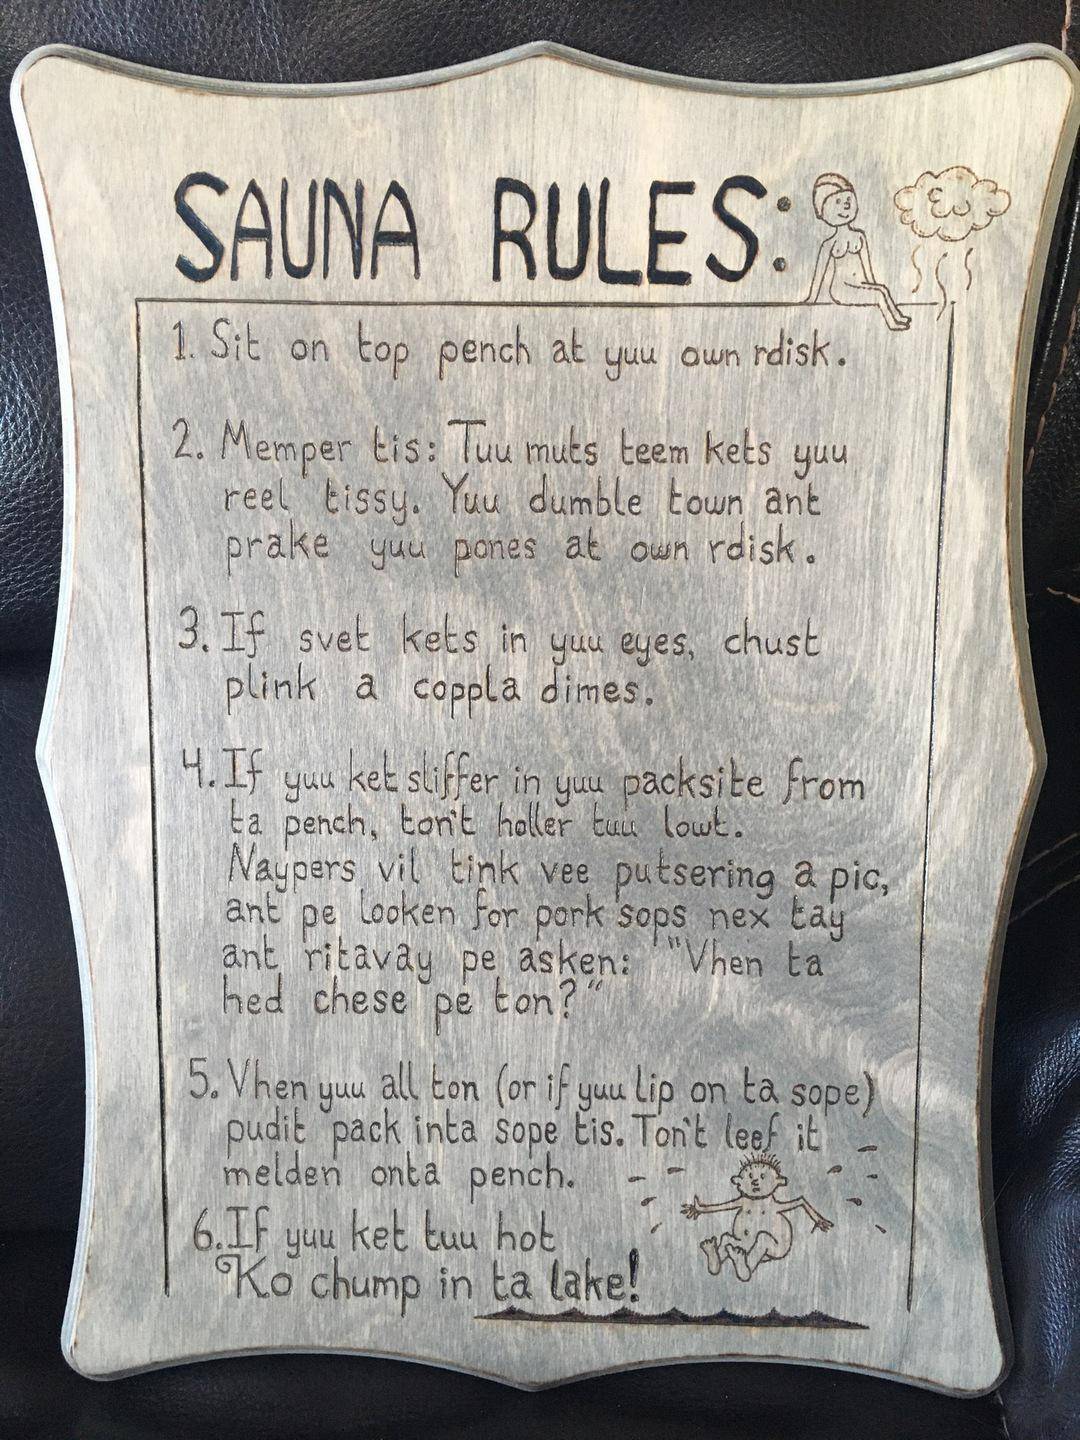 SAUNA RULES:
1. Sit on top pench at yuu own rdisk.
2. Memper tis: Tuu muts teem kets yuu
reel tissy. Yuu dumble town ant
prake yuu pones at own rdisk.
3. If svet kets in yuu eyes, chust
plink a coppla dimes.
4. If yuu ket sliffer in yuu packsite from
ta pench, ton't holler tuu lowt.
Naypers vil tink vee putsering a pic,
ant pe looken for pork sops nex tay
ant ritavay pe asken: "Vhen ta
hed chese pe ton?"
5. Vhen yuu all ton (or if yuu lip on ta sope)
pudit pack inta sope tis. Ton't leef it
melden onta pench.
6. If yuu ket tuu hot
Ko chump in ta lake!